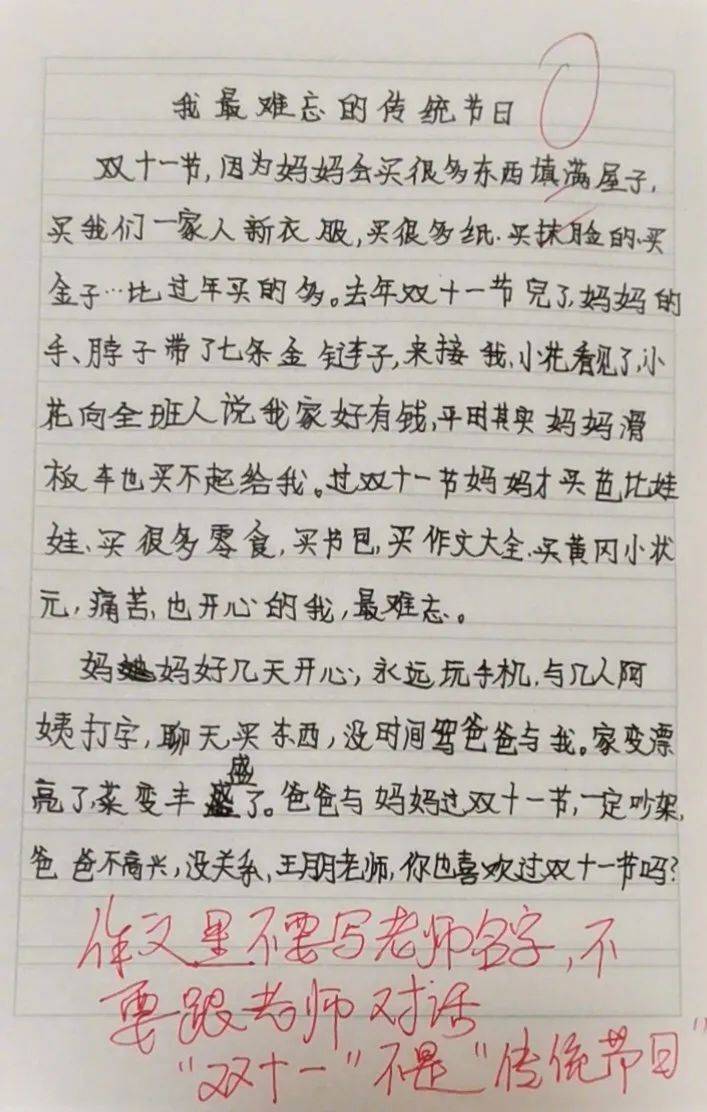 我最难忘的传统节日
双十一节,因为妈妈会买很多东西填满屋子,
买我们一家人新衣服,买很多纸、买抹脸的、买
金子…比过年买的多。去年双十一节完了,妈妈的
手、脖子带了七条金链子,来接我,小花看见了,小
花向全班人说我家好有钱,平时其实妈妈滑
板车也买不起给我。过双十一节妈妈才买芭比娃
娃、买很多零食,买书包,买作文大全、买黄冈小状
元,痛苦、也开心的我,最难忘。
妈妈好几天开心,永远玩手机,与几人阿
姨打字,聊天买东西,没时间骂爸爸与我。家变漂
亮了,菜变丰盛了。爸爸与妈妈过双十一节,一定吵架,
爸爸不高兴,没关系,王朋老师,你也喜欢过双十一节吗?
作文里不要写老师名字,不
要跟老师对话
“双十一”不是“传统节日”